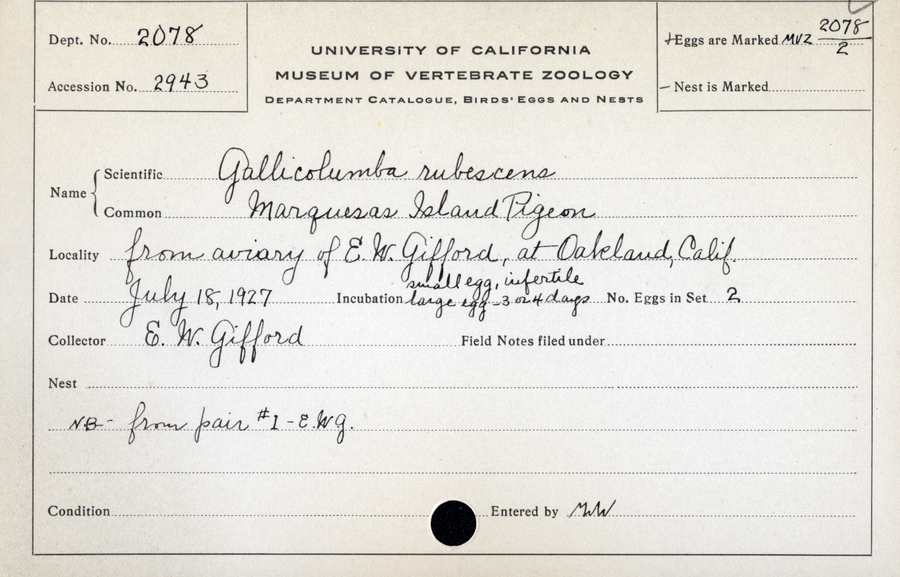 Dept. No. 2078
Accession No. 2943
UNIVERSITY OF CALIFORNIA
MUSEUM OF VERTEBRATE ZOOLOGY
DEPARTMENT CATALOGUE, BIRDS' EGGS AND NESTS
+Eggs are Marked MVZ 2078/2
– Nest is Marked
Name
Scientific Gallicolumba rubescens
Common Marquesas Island Pigeon
Locality from aviary of E. W. Gifford, at Oakland, Calif.
Date July 18, 1927 Incubation small egg, infertile
large egg - 3 or 4 days No. Eggs in Set 2
Collector E. W. Gifford Field Notes filed under
Nest
NB - from pair #1 - E.W.G.
Condition Entered by MW